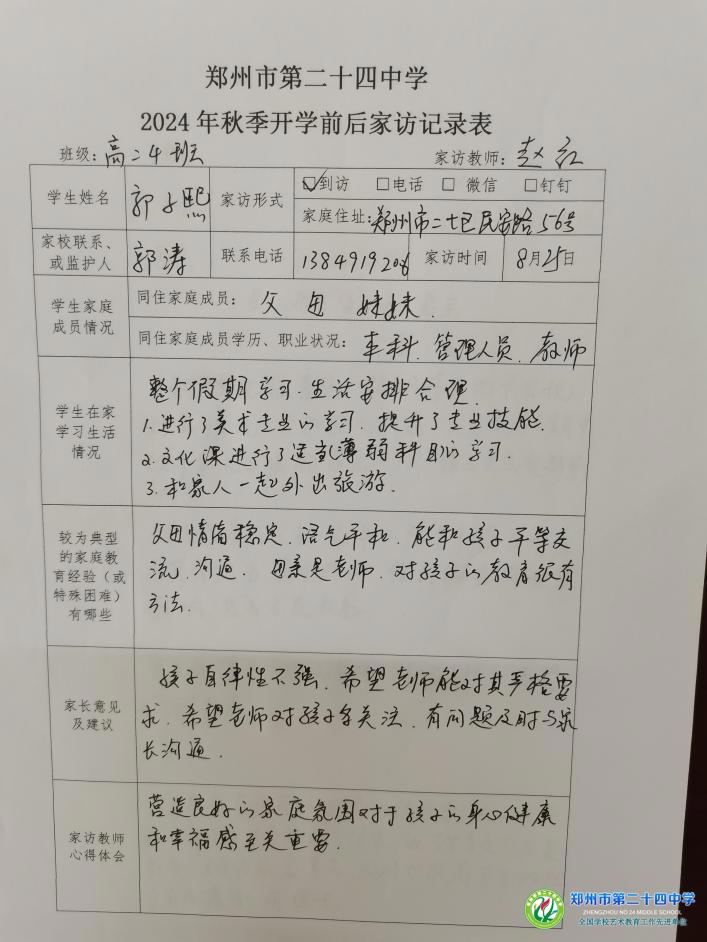 郑州市第二十四中学
2024年秋季开学前后家访记录表
班级：高二4班 家访教师：赵红
学生姓名 郭子熙 家访形式 ☑到访 □电话 □微信 □钉钉
家庭住址：郑州市二七区民安路56号
家校联系、或监护人 郭涛 联系电话 家访时间 8月25日
学生家庭成员情况 同住家庭成员：父母 妹妹.
同住家庭成员学历、职业状况：本科.管理人员.教师
学生在家学习生活情况
整个假期学习.生活安排合理.
1.进行了美术专业的学习.提升了专业技能.
2.文化课进行了适当薄弱科目的学习.
3.和家人一起外出旅游.
较为典型的家庭教育经验（或特殊困难）有哪些
父母情绪稳定.语气平和.能和孩子平等交
流.沟通.母亲是老师.对孩子的教育很有
方法.
家长意见及建议
孩子自律性不强.希望老师能对其严格要
求.希望老师对孩子多关注.有问题及时与家
长沟通.
家访教师心得体会
营造良好的家庭氛围对于孩子的身心健康
和幸福感至关重要.
郑州市第二十四中学
ZHENGZHOU NO 24 MIDDLE SCHOOL
全国学校艺术教育工作先进单位